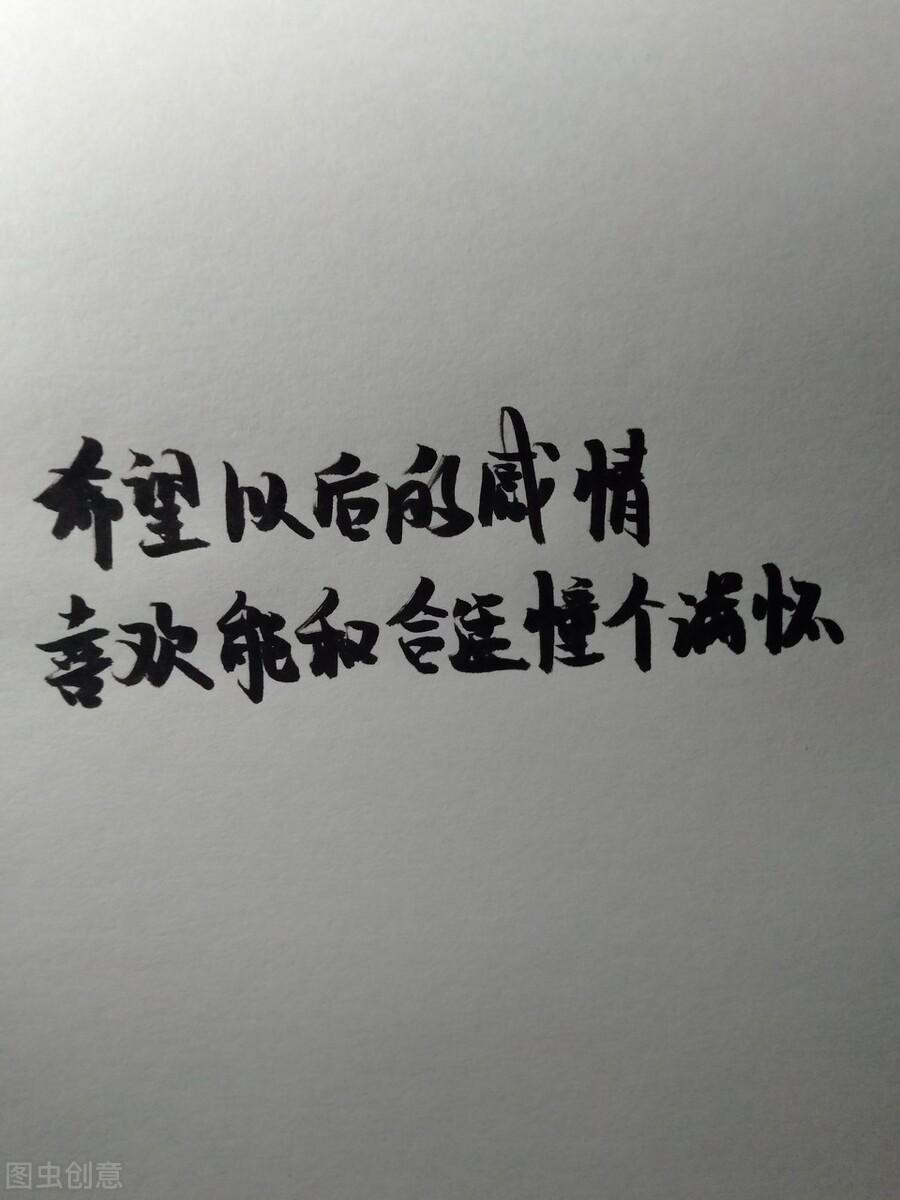 希望以后的感情
喜欢能和合适憧个满怀
图虫创意